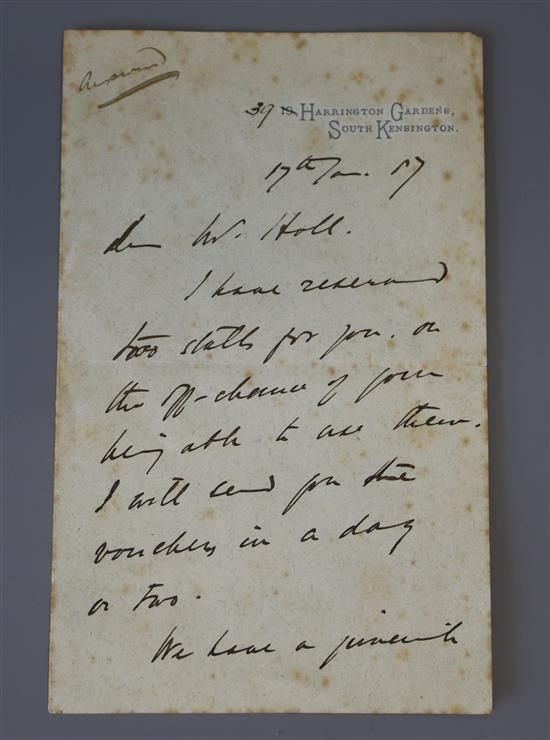 Answered
39 19 HARRINGTON GARDENS,
SOUTH KENSINGTON.
17th Jan. 87
dear Mr. Holl.
I have reserved
two stalls for you. on
the off-chance of your
being able to use them.
I will send you the
vouchers in a day
or two.
We have a juvenile